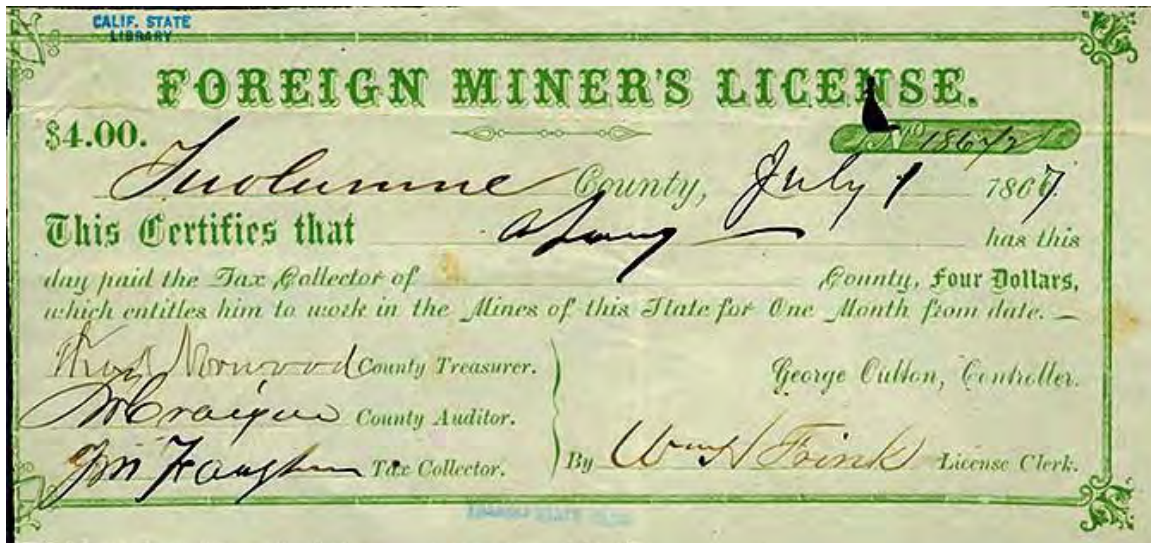 CALIF. STATE
LIBRARY
FOREIGN MINER'S LICENSE.
$4.00.
No 18672
Tuolumne County, July 1 1867.
This Certifies that has this
day paid the Tax Collector of County, Four Dollars,
which entitles him to work in the Mines of this State for One Month from date.
Norwood County Treasurer.
County Auditor.
George Oulton, Controller.
Tax Collector.
By Wm H Frink License Clerk.